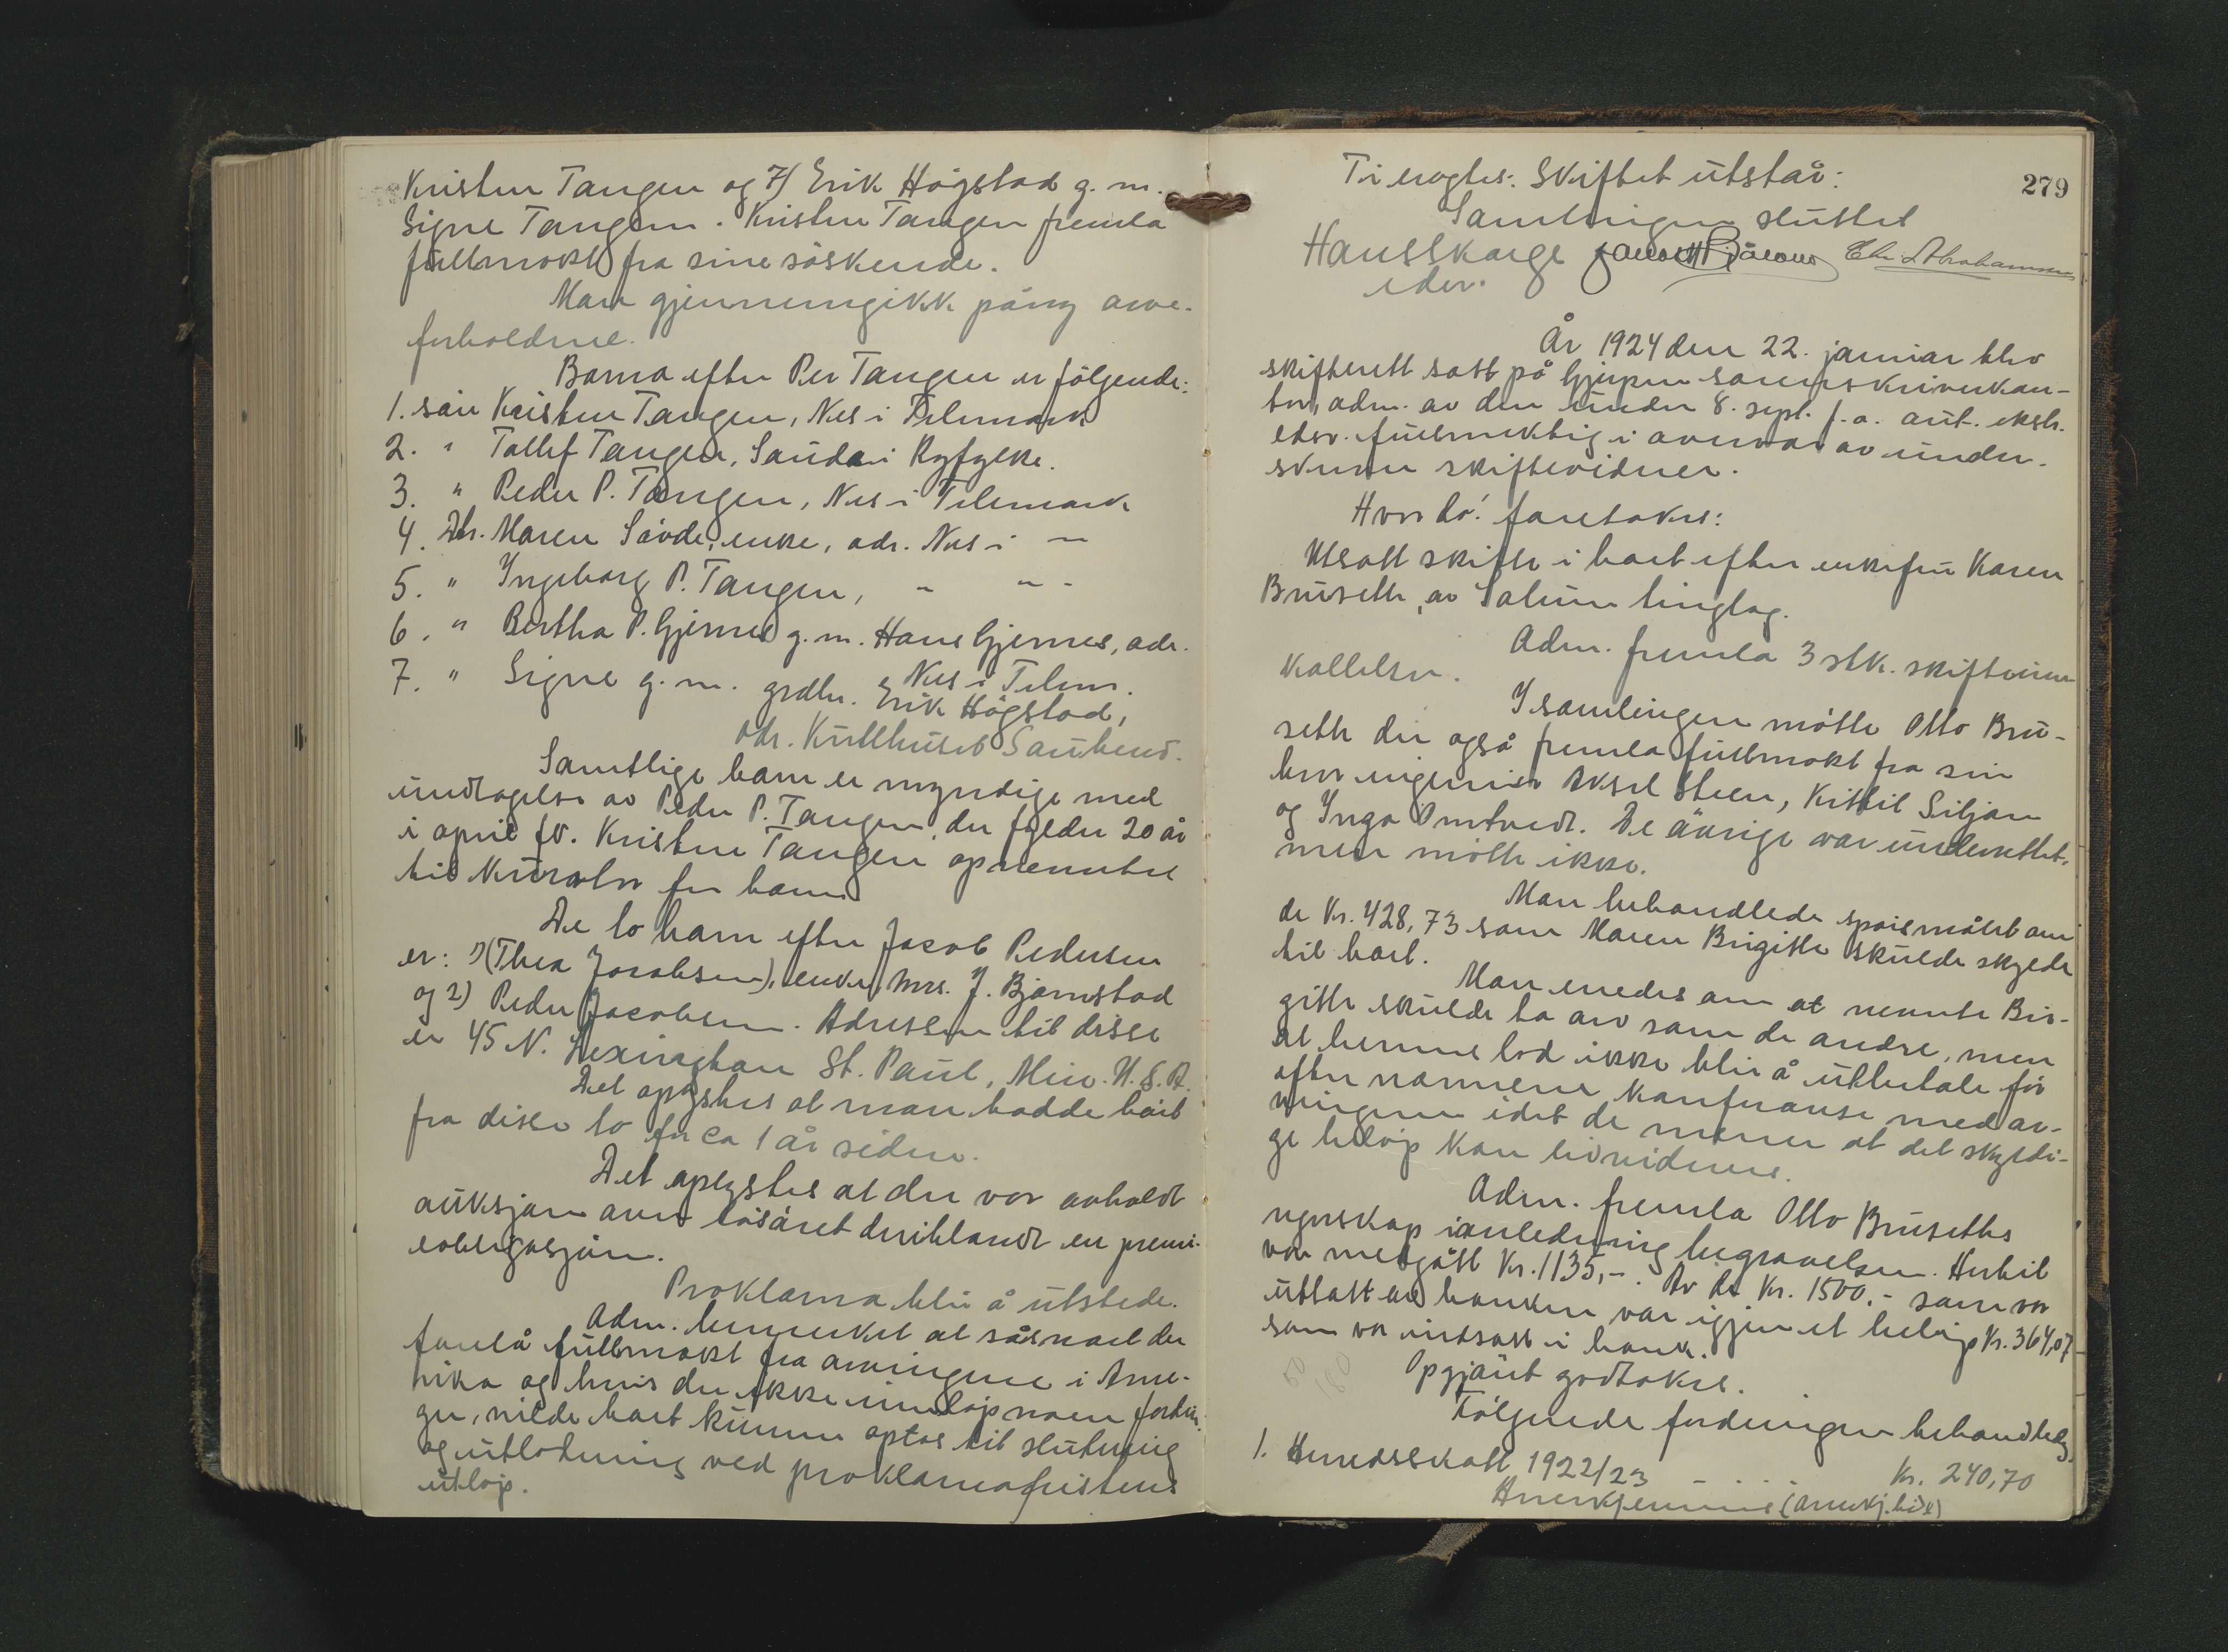 Kristen Tangen og 7/ Erik Högstad g. m.
Signe Tangen. Kristen Tangen fremla
fullmakt fra sine söskende.
Man gjennemgikk påny arve-
forholdene.
Barna efter Per Tangen er fölgende:
1. sön Kristen Tangen, Nes i Telemark
2. " Tollef Tangen, Sauda i Ryfylke.
3. " Peder P. Tangen, Nes i Telemark
4. Dtr. Maren Sövde, enke, adr. Nes i —
5. " Ingeborg P. Tangen, " " -
6. " Bertha P. Gjernes g. m. Hans Gjernes, adr.
Nes i Telem.
7. " Signe g. m. grdbr. Erik Högstad,
adr. Kullhuset Sauherad.
Samtlige barn er myndige med
undtagelse av Peder P. Tangen, der fylder 20 år
i april fv. Kristen Tangen opnevntes
til kurator for ham
De to barn efter Jacob Pedersen
er: 1) (Thea Jacobsen), enke, Mrs. J. Bjørnstad
og 2) Peder Jacobsen. Adressen til disse
er 45 N. Lexington St. Paul, Min. U.S.A.
Det oplystes at man hadde hört
fra disse to for ca 1 år siden.
Det oplystes at der var avholdt
auksjon over lösöret deriblandt en premi-
eobligasjon.
Proklama blir å utstede.
Adm. bemerket at såsnart der
forelå fullmakt fra arvingene i Ame-
rika og hvis der ikke innlöp noen fordrin-
ger, vilde boet kunne optas til slutning
og utlodning ved proklamafristens
utlöp.
279
Ti eragtes: Skiftet utstår:
Samlingen sluttet
Hans Skarge Chr. Abrahamsen
edsv.
År 1924 den 22. januar blev
skifterett satt på Gjerpen sorenskriverkon-
tor, adm. av den under 8. sept. f. a. aut. ekstr.
edsv. fullmektig i overvær av under-
skrevne skiftevidner.
Hvorda! foretokes:
Utsatt skifte i boet efter enkefru Karen
Bruseth, av Solum tinglag.
Adm. fremla 3 stk. skifteinn-
kallelser.
I samlingen mötte Otto Bru-
seth der også fremla fullmakt fra sin
bror ingeniör Aksel Steen, Kittil Siljan
og Inga Omtvedt. De övrige var underrettet,
men mötte ikke.
Man behandlede spörsmålet om
de Kr. 428,73 som Maren Brigitte skulde skylde
til boet.
Man enedes om at nevnte Bri-
gitte skulde ta arv som de andre, men
at hennes lod ikke blir å utbetale för
efter nærmere konferanse med ar-
vingene idet de mener at det skyldi-
ge belöp kan likvideres.
Adm. fremla Otto Bruseths
regnskap i anledning begravelsen. Hertil
var medgått Kr. 1135,-. Av de Kr. 1500,- som var
uttatt av banken var igjen et belöp Kr. 364,07
som var indsatt i bank.
Opgjöret godtokes.
Fölgende fordringer behandledes
1. Herredsskatt 1922/23 - . . . Kr. 240,70
Anerkjennes (anerkj. tidl)